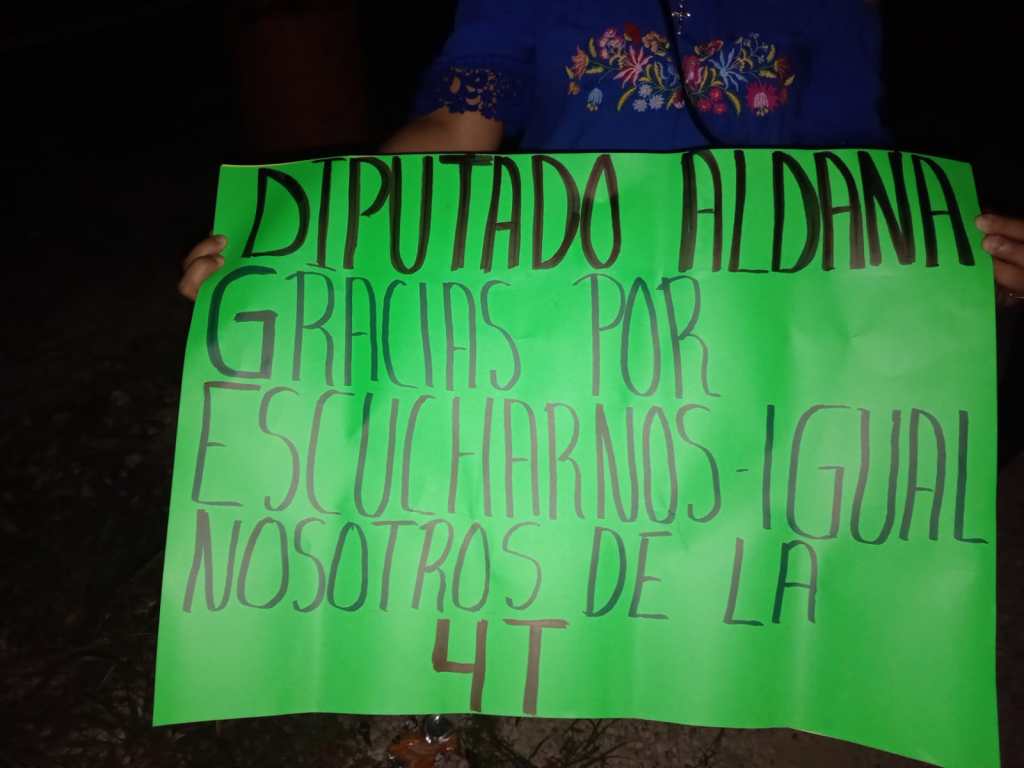 DIPUTADO ALDANA
GRACIAS POR
ESCUCHARNOS-IGUAL
NOSOTROS DE LA
4T